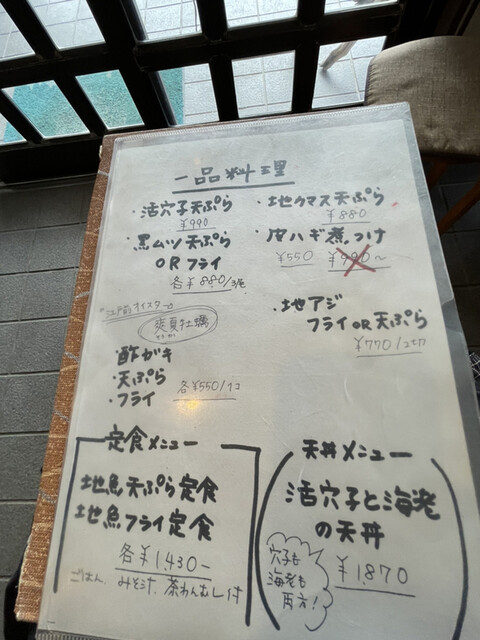 一品料理
・活穴子天ぷら
¥990
・地カマス天ぷら
¥880
・黒ムツ天ぷら
ORフライ
各¥880/3尾
・皮ハギ煮つけ
¥550 ¥990~
江戸前オイスター
爽夏牡蠣
・地アジ
フライOR天ぷら
¥770/2切
酢がき
・天ぷら
・フライ
各¥550/1コ
定食メニュー
地魚天ぷら定食
地魚フライ定食
各¥1,430-
ごはん、みそ汁、茶わんむし付
天丼メニュー
活穴子と海老
の天丼
穴子も
海老も
両方!
¥1870